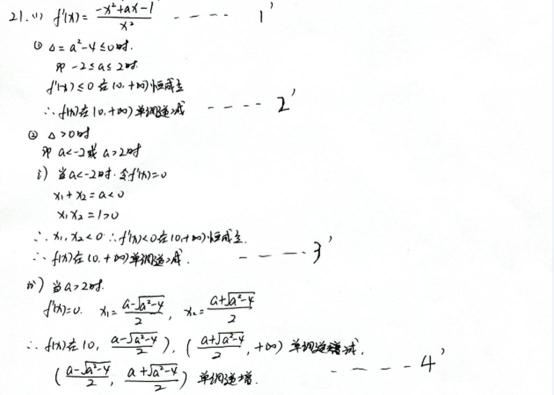 21.(1) f'(x)= (-x²+ax-1)/x² ---- 1'
① Δ=a²-4≤0时.
即 -2≤a≤2时.
f'(x)≤0 在(0,+∞)恒成立
∴ f(x)在(0,+∞)单调递减 ---- 2'
② Δ>0时
即 a<-2或 a>2时
i) 当a<-2时.令f'(x)=0
x₁+x₂=a<0
x₁x₂=1>0
∴ x₁,x₂<0 ∴f'(x)<0在(0,+∞)恒成立.
∴ f(x)在(0,+∞)单调递减. ---- 3'
ii) 当a>2时.
f'(x)=0. x₁= (a-√(a²-4))/2, x₂= (a+√(a²-4))/2
∴ f(x)在(0, (a-√(a²-4))/2), ((a+√(a²-4))/2, +∞) 单调递减.
((a-√(a²-4))/2, (a+√(a²-4))/2) 单调递增. ---- 4'